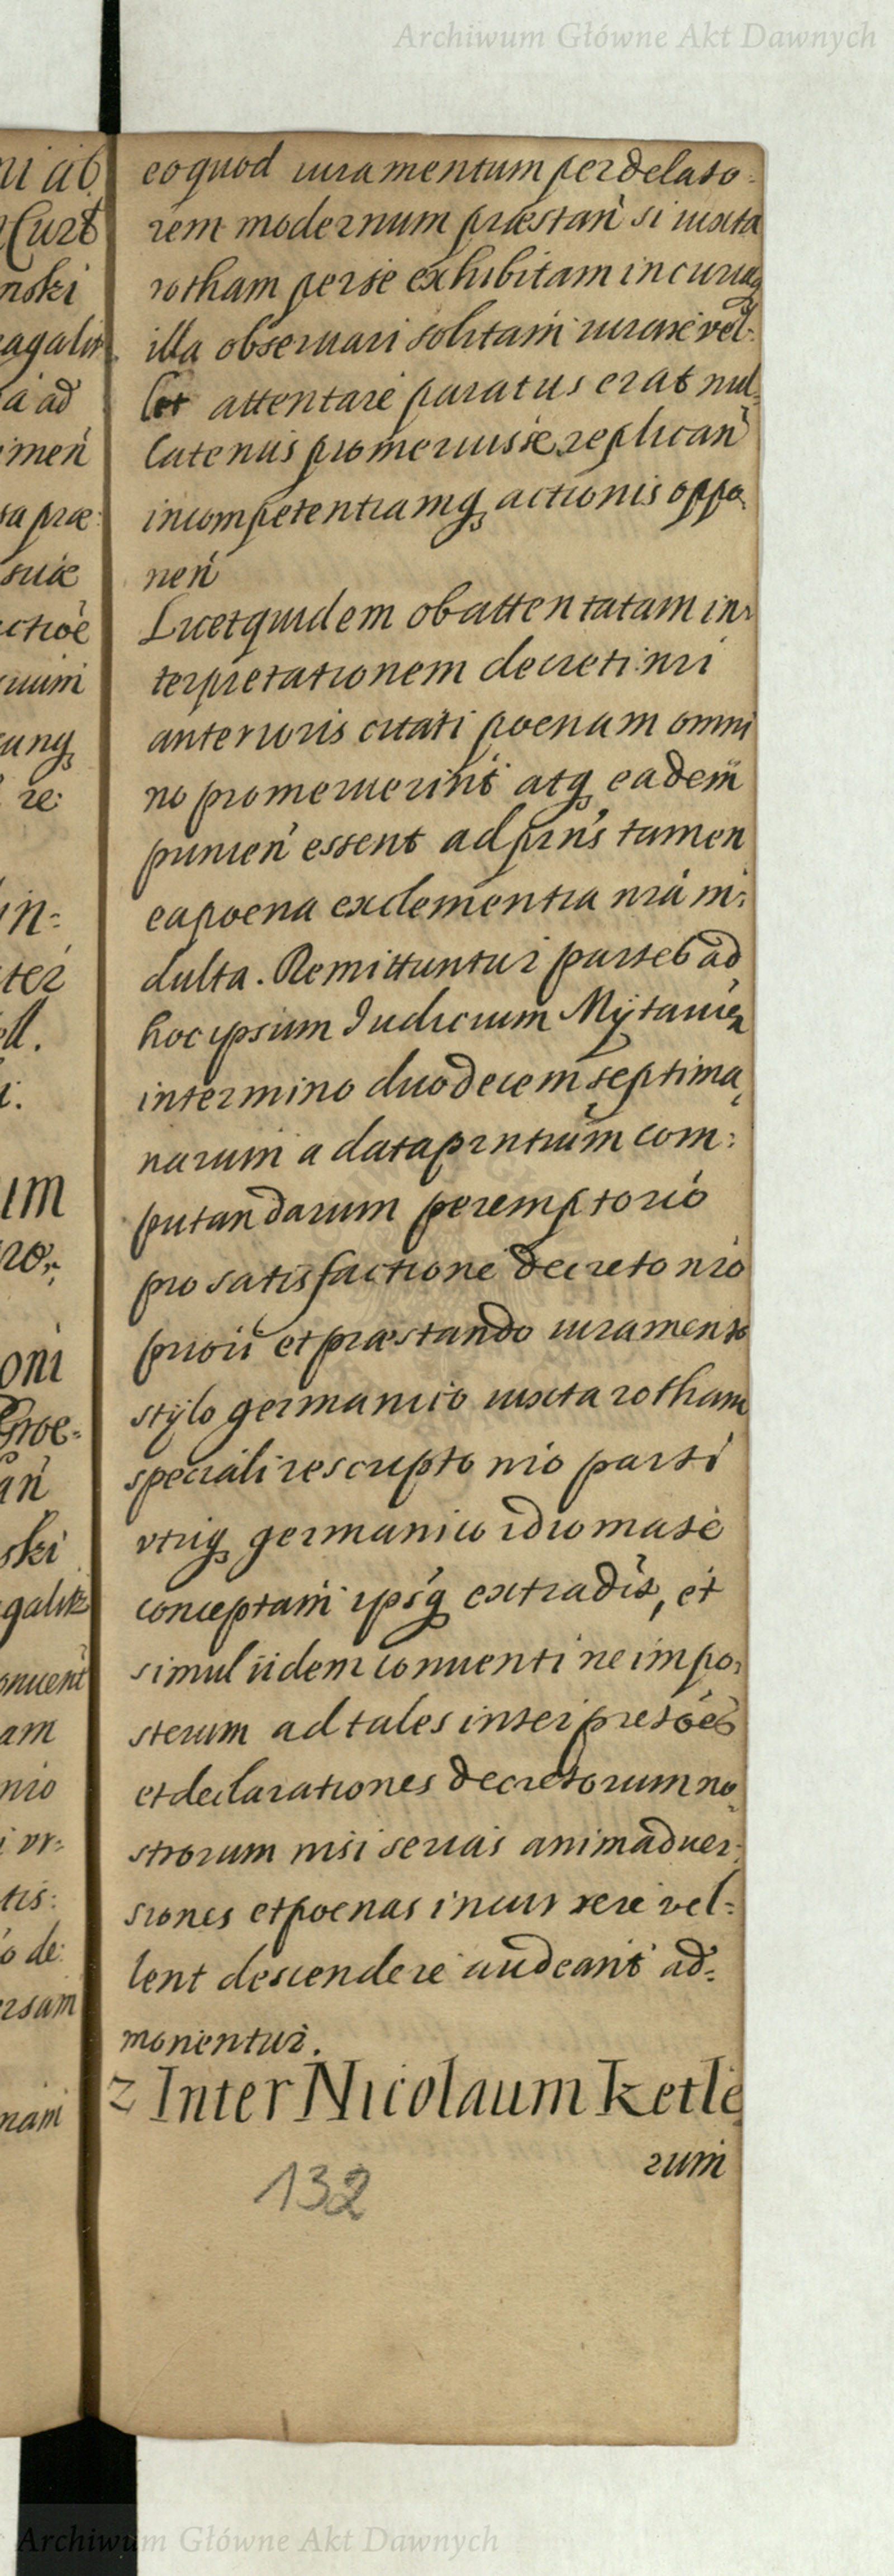 Archiwum Główne Akt Dawnych
ni ab
Curt
nski
agalit
a ad
imen
sa præ:
suæ
ctioē
unq
re:
in=
ter
ell.
i.
um
oni
Groe=
an
ski
galit
onuent
am
nio
i vr=
tis:
o de:
ersam
nam
eo quod iuramentum per delato=
rem modernum præstan si iuxta
rotham per se exhibitam in curiaq
illa obseruari solitam iurare vel=
let attentare paratus erat nul=
latenus promeruisse replican
incompetentiamq actionis oppo=
nen
Licet quidem ob attentatam in=
terpretationem decreti nri
anterioris citati poenam omni
no promeruerint atq eadem
punien essent ad prns tamen
ea poena ex clementia nra in=
dulta. Remittuntur partes ad
hoc ipsum Iudicium Mÿtauien
in termino duodecem septima=
narum a data prntium com=
putandarum peremptorio
pro satisfactione decreto nro
priori et præstando iuramento
stÿlo germanico iuxta rotham
speciali rescripto nro parti
vtriq germanico idiomate
conceptam ipsq extradit, et
simul iidem conuenti ne impo=
sterum ad tales interpretōes
et declarationes decretorum no=
strorum nisi serias animaduer=
siones et poenas incurrere vel=
lent descendere audeant ad=
monentur.
2 Inter Nicolaum Ketle
rum
132
Archiwum Główne Akt Dawnych